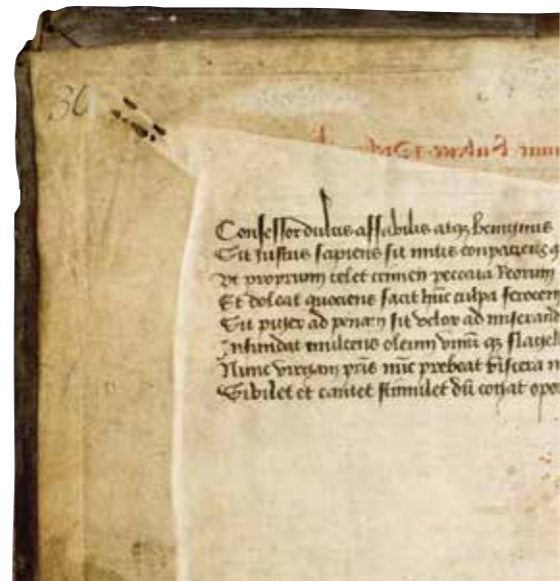 36
Confessor dulcis affabilis atqꝫ benignus
Sit iustus sapiens sit mitis conpaciens q
Vt proprium celet crimen peccata Reorum
Et doleat quociens facit hūc culpa ferocem
Sit piger ad penam sit velox ad miserand
Infundat mulcens oleum vinū qꝫ flagell
Nunc virgam pr̄is nūc prebeat viscera m
Sibilet et cantet stimulet dū cogat opor